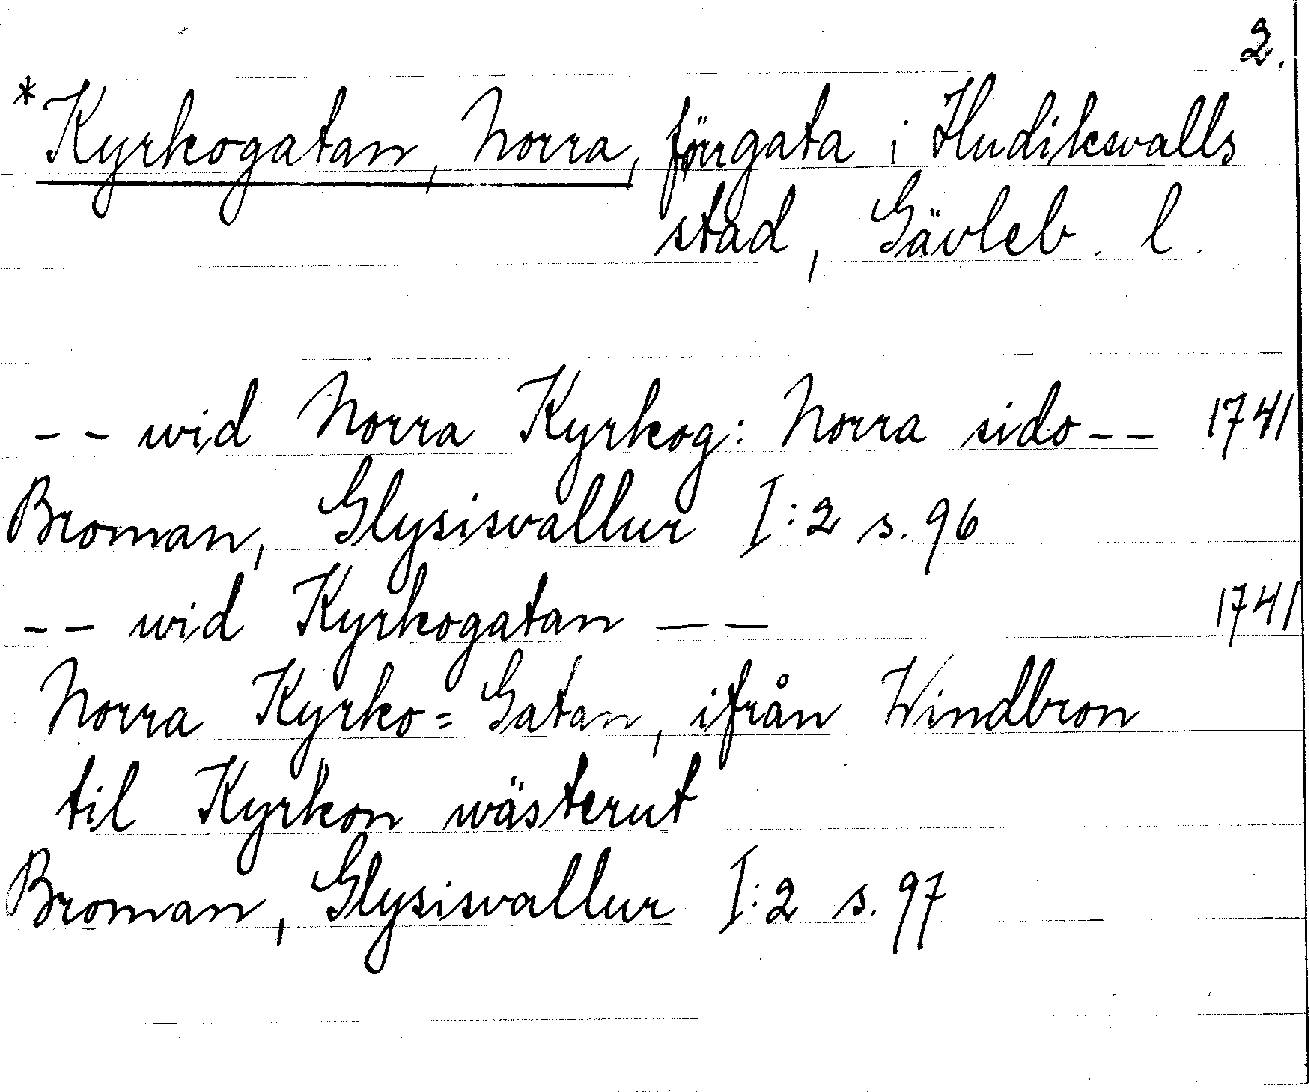 2.
*Kyrkogatan, Norra, förr gata i Hudiksvalls
stad, Gävleb. l.
-- wid Norra Kyrkog: Norra sido -- 1741
Broman, Glysisvallur I:2 s. 96
-- wid Kyrkogatan -- 1741
Norra Kyrko=Gatan, ifrån Windbron
til Kyrkon wästerut
Broman, Glysisvallur I:2 s. 97